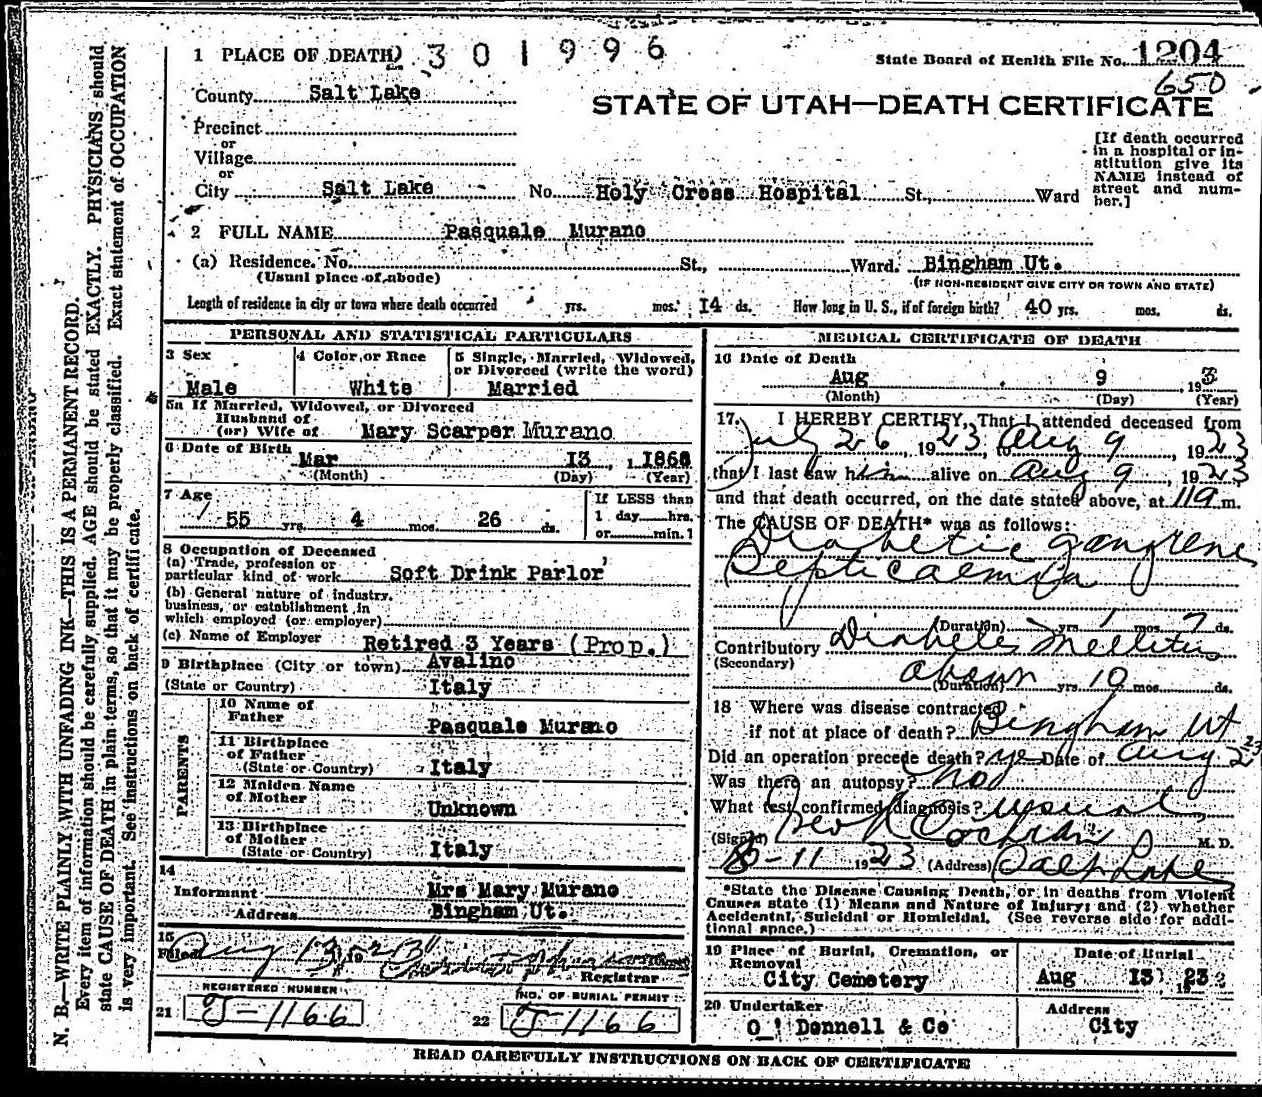 1 PLACE OF DEATH 301996
State Board of Health File No. 1204
650
County Salt Lake
STATE OF UTAH—DEATH CERTIFICATE
Precinct
or
Village
or
City Salt Lake No. Holy Cross Hospital St., Ward
[If death occurred
in a hospital or in-
stitution give its
NAME instead of
street and num-
ber.]
2 FULL NAME Pasquale Murano
(a) Residence. No. St., Ward. Bingham Ut.
(Usual place of abode)
(IF NON-RESIDENT GIVE CITY OR TOWN AND STATE)
Length of residence in city or town where death occurred yrs. mos. 14 ds. How long in U. S., if of foreign birth? 40 yrs. mos. ds.
PERSONAL AND STATISTICAL PARTICULARS
3 Sex
Male
4 Color or Race
White
5 Single, Married, Widowed,
or Divorced (write the word)
Married
5a If Married, Widowed, or Divorced
Husband of
(or) Wife of Mary Scarper Murano
6 Date of Birth Mar 13, 1868
(Month) (Day) (Year)
7 Age
55 yrs. 4 mos. 26 ds.
If LESS than
1 day hrs.
or min.
8 Occupation of Deceased
(a) Trade, profession or
particular kind of work Soft Drink Parlor
(b) General nature of industry,
business, or establishment in
which employed (or employer)
(c) Name of Employer Retired 3 Years (Prop.)
9 Birthplace (City or town) Avalino
(State or Country) Italy
PARENTS
10 Name of
Father Pasquale Murano
11 Birthplace
of Father
(State or Country) Italy
12 Maiden Name
of Mother
Unknown
13 Birthplace
of Mother
(State or Country) Italy
14
Informant Mrs Mary Murano
Address Bingham Ut.
15
Filed Aug 13, 1923
Registrar
REGISTERED NUMBER
21 J-1166
NO. OF BURIAL PERMIT
22 J-1166
MEDICAL CERTIFICATE OF DEATH
16 Date of Death
Aug 9 193
(Month) (Day) (Year)
17. I HEREBY CERTIFY, That I attended deceased from
July 26, 1923, to Aug 9, 1923
that I last saw him alive on Aug 9, 1923
and that death occurred, on the date stated above, at 119 m.
The CAUSE OF DEATH* was as follows:
Diabetic gangrene
Septicaemia
(Duration) yrs. 1 mos. 7 ds.
Contributory Diabetes Mellitus
(Secondary)
(Duration) yrs. 10 mos. ds.
18 Where was disease contracted
if not at place of death? Bingham Ut
Did an operation precede death? yes Date of Aug 2 23
Was there an autopsy? No
What test confirmed diagnosis? usual
(Signed) Geo N Cochran M. D.
8-11 1923 (Address) Salt Lake
*State the Disease Causing Death, or in deaths from Violent
Causes state (1) Means and Nature of Injury; and (2) whether
Accidental, Suicidal or Homicidal. (See reverse side for addi-
tional space.)
19 Place of Burial, Cremation, or
Removal
City Cemetery
Date of Burial
Aug 13, 1923
20 Undertaker
O'Donnell & Co
Address
City
READ CAREFULLY INSTRUCTIONS ON BACK OF CERTIFICATE
N. B.—WRITE PLAINLY WITH UNFADING INK—THIS IS A PERMANENT RECORD.
Every item of information should be carefully supplied. AGE should be stated EXACTLY. PHYSICIANS should
state CAUSE OF DEATH in plain terms, so that it may be properly classified. Exact statement of OCCUPATION
is very important. See instructions on back of certificate.